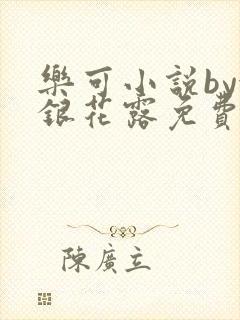 樂可小說by
銀花露免費
陳廣立